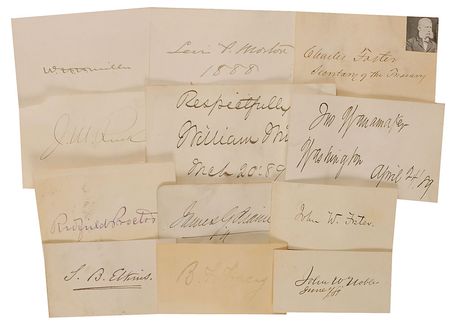 W. H. H. Miller
Levi P. Morton
1888
Charles Foster
Secretary of the Treasury
J. M. Rusk
Respectfully
William Wi
Mch 20. 89
Jno Wanamaker
Washington
April 24/89
Redfield Proctor
James G. Blaine
John W. Foster
S. B. Elkins.
B. F. Tracy
John W Noble